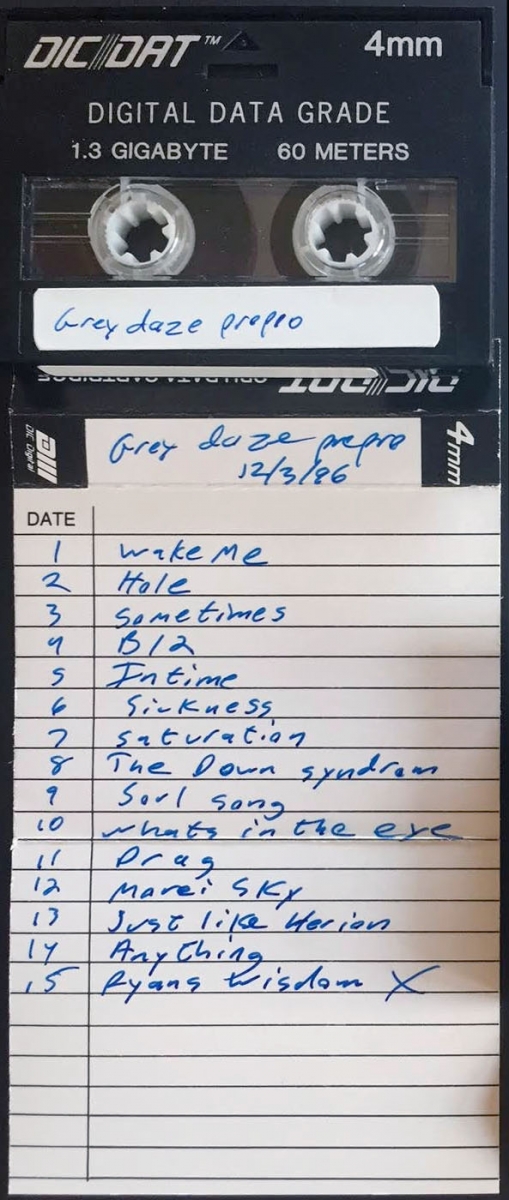 DIC///DAT™
4mm
DIGITAL DATA GRADE
1.3 GIGABYTE 60 METERS
Grey daze prepro
DIC///DAT
DIC Digital
Grey daze prepro
12/3/96
4mm
DATE
1 wake Me
2 Hole
3 sometimes
4 B12
5 Intime
6 Sickness
7 saturation
8 The Down syndrom
9 Soul song
10 whats in the eye
11 Drag
12 Morei SKy
13 Just like Heroin
14 Anything
15 Ryans wisdom X